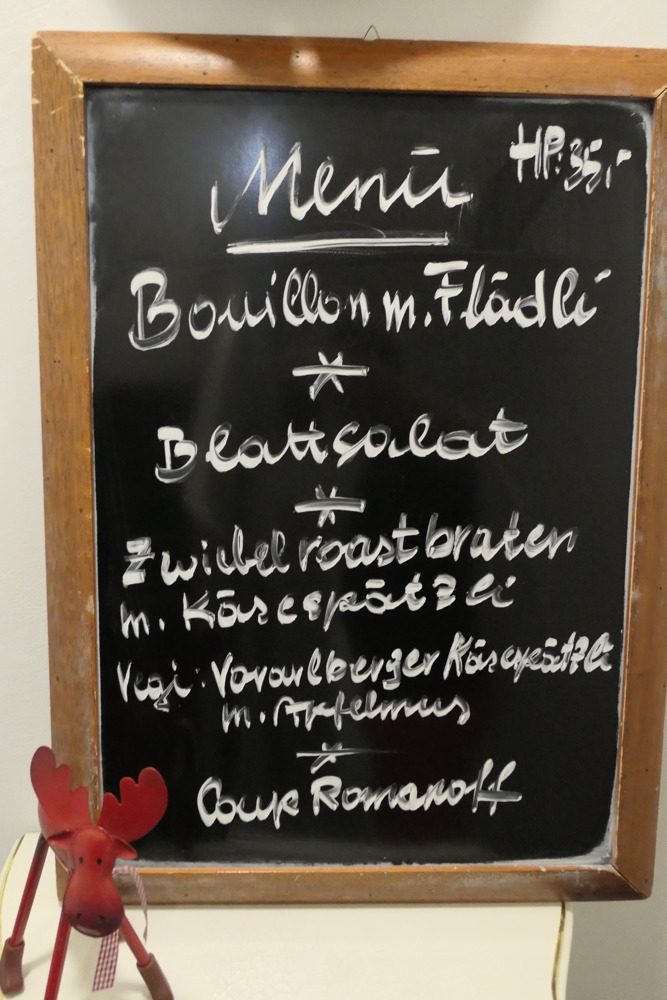 Menü
HP: 35,-
Bouillon m. Flädli
*
Blattsalat
*
Zwiebelroastbraten
m. Käsespätzli
Vegi: Vorarlberger Käsespätzli
m. Apfelmus
*
Coup Romanoff